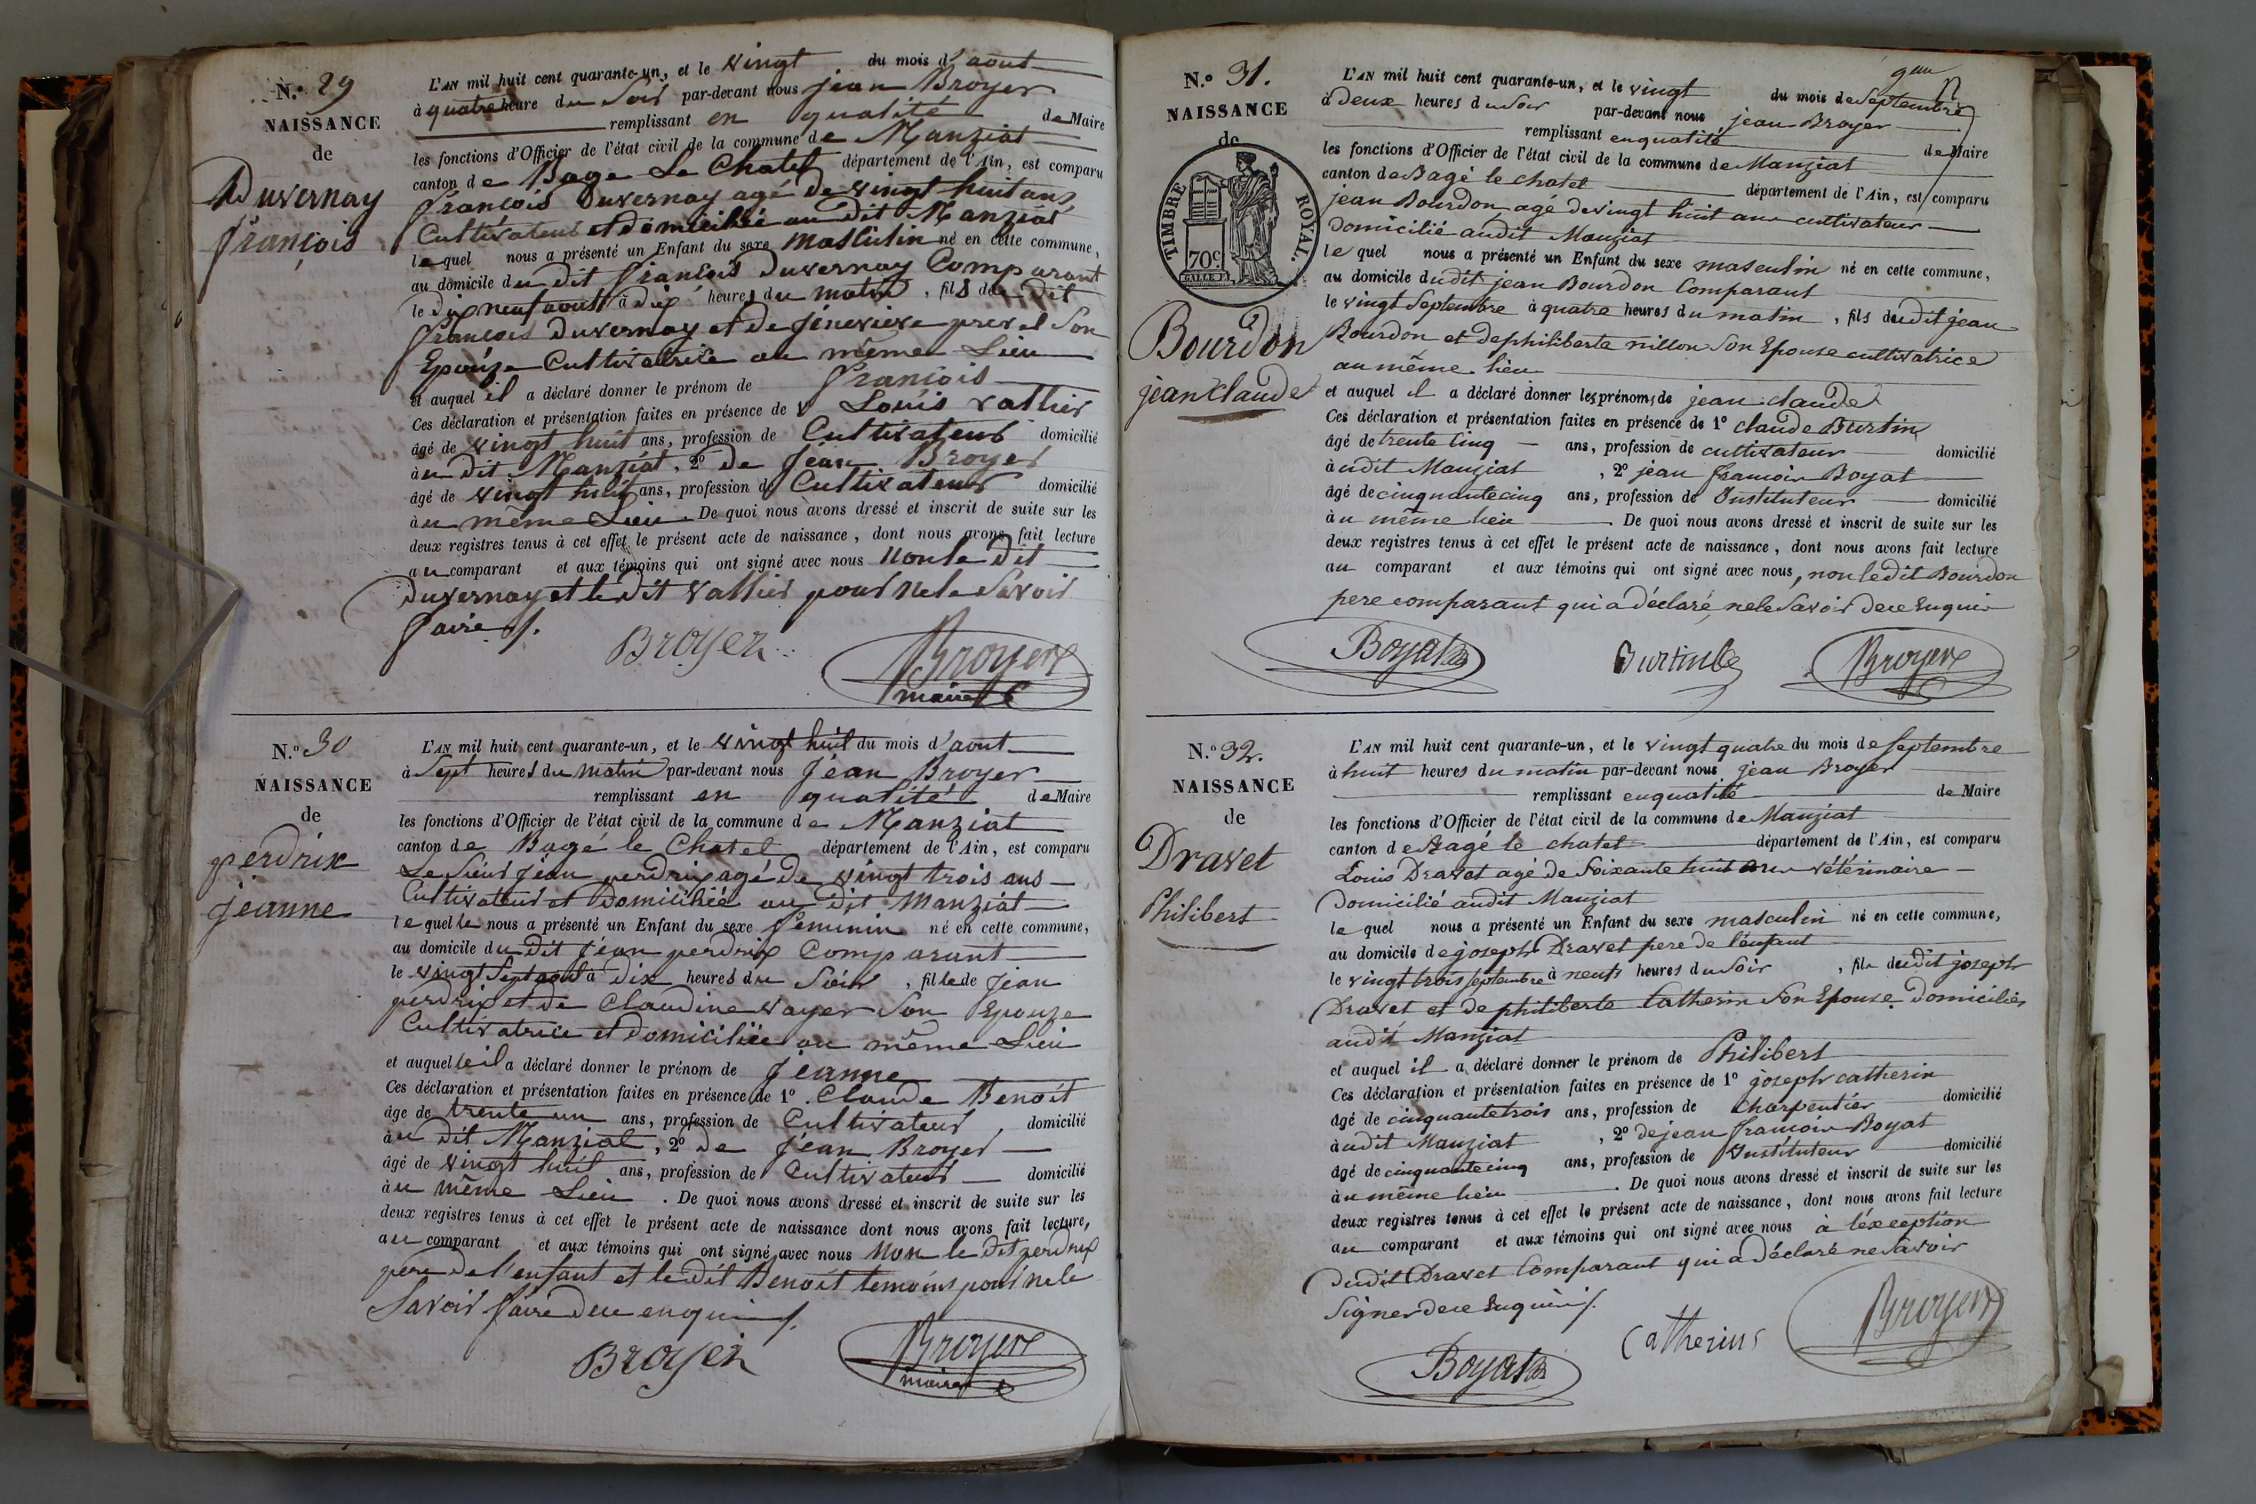 N.o 29
NAISSANCE
de
Duvernay
françois
L'AN mil huit cent quarante-un, et le vingt du mois d'aout
à quatre heure du Soir par-devant nous jean Broyer
remplissant en qualité de Maire
les fonctions d'Officier de l'état civil de la commune de Manziat
canton de Bage Le Chatel département de l'Ain, est comparu
françois Duvernay agé de vingt huit ans
Cultivateur et domicilié au dit Manziat
lequel nous a présenté un Enfant du sexe masculin né en cette commune,
au domicile du dit françois Duvernay Comparant
le dix neuf aout à dix heures du matin, fils du dit
françois Duvernay et de jénevieve prevel Son
Epouze Cultivatrice au même Lieu
et auquel il a déclaré donner le prénom de françois
Ces déclaration et présentation faites en présence de Louis vallier
âgé de vingt huit ans, profession de Cultivateur domicilié
au dit Manziat, 2o de Jean Broyer
âgé de vingt huit ans, profession de Cultivateur domicilié
au même Lieu. De quoi nous avons dressé et inscrit de suite sur les
deux registres tenus à cet effet le présent acte de naissance, dont nous avons fait lecture
au comparant et aux témoins qui ont signé avec nous Non le Dit
Duvernay et le Dit vallier pour ne le Savoir
faire /.
Broyer
Broyer
maire
N.o 30
NAISSANCE
de
perdrix
jeanne
L'AN mil huit cent quarante-un, et le vingt huit du mois d'aout
à Sept heures du matin par-devant nous Jéan Broyer
remplissant en qualité de Maire
les fonctions d'Officier de l'état civil de la commune de Manziat
canton de Bagé le Chatel département de l'Ain, est comparu
Le Sieur jéan perdrix agé de vingt trois ans
Cultivateur et Domiciliée au dit Manziat
lequelle nous a présenté un Enfant du sexe féminin né en cette commune,
au domicile du Dit jéan perdrix Comparant
le vingt Sept aout à Dix heures du Soir, fille de Jéan
perdrix et de Claudine vayer Son Epouze
Cultivatrice et Domiciliée au même Lieu
et auquelle il a déclaré donner le prénom de Jéanne
Ces déclaration et présentation faites en présence de 1o Claude Benoit
âge de trente un ans, profession de Cultivateur, domicilié
au dit Manziat, 2o De Jéan Broyer
âgé de vingt huit ans, profession de Cultivateur domicilié
au même Lieu. De quoi nous avons dressé et inscrit de suite sur les
deux registres tenus à cet effet le présent acte de naissance dont nous avons fait lecture,
au comparant et aux témoins qui ont signé avec nous Non le Dit perdrix
pere de l'enfant et le Dit Benoit temoins pour ne le
Savoir faire de ce enquis /.
Broyer
Broyer
maire
N.o 31.
NAISSANCE
de
TIMBRE ROYAL.
70c
Bourdon
jean Claude
L'AN mil huit cent quarante-un, et le vingt du mois de Septembre
à Deux heures du Soir par-devant nous jean Broyer
remplissant en qualité de Maire
les fonctions d'Officier de l'état civil de la commune de Manziat
canton de Bagé le chatel département de l'Ain, est comparu
jean Bourdon, agé de vingt huit ans cultivateur
domicilié audit Manziat
lequel nous a présenté un Enfant du sexe masculin né en cette commune,
au domicile dudit jean Bourdon Comparant
le vingt Septembre à quatre heures du matin, fils dudit jean
Bourdon et de philiberte nillon Son Epouse cultivatrice
au même lieu
et auquel il a déclaré donner les prénoms de jean claude
Ces déclaration et présentation faites en présence de 1o claude Burtin
âgé de trente Cinq ans, profession de cultivateur domicilié
audit Manziat, 2o jean françois Boyat
âgé de cinquante cinq ans, profession de Instituteur domicilié
au même lieu. De quoi nous avons dressé et inscrit de suite sur les
deux registres tenus à cet effet le présent acte de naissance, dont nous avons fait lecture
au comparant et aux témoins qui ont signé avec nous, non ledit Bourdon
pere comparant qui a déclaré, ne le Savoir de ce Enquis
Boyat
Burtin
Broyer
N.o 32.
NAISSANCE
de
Dravet
Philibert
L'AN mil huit cent quarante-un, et le vingt quatre du mois de Septembre
à huit heures du matin par-devant nous jean Broyer
remplissant en qualité de Maire
les fonctions d'Officier de l'état civil de la commune de Manziat
canton de Bagé le chatel département de l'Ain, est comparu
Louis Dravet agé de Soixante huit ans vétérinaire
Domicilié audit Manziat
lequel nous a présenté un Enfant du sexe masculin né en cette commune,
au domicile de joseph Dravet pere de l'enfant
le vingt trois septembre à neuf heures du Soir, fils dudit joseph
Dravet et de philiberte Catherin Son Epouse Domiciliés
audit Manziat
et auquel il a déclaré donner le prénom de Philibert
Ces déclaration et présentation faites en présence de 1o joseph catherin
âgé de cinquante trois ans, profession de charpentier domicilié
audit Manziat, 2o de jean francois Boyat
âgé de cinquante cinq ans, profession de Instituteur domicilié
au même lieu. De quoi nous avons dressé et inscrit de suite sur les
deux registres tenus à cet effet le présent acte de naissance, dont nous avons fait lecture
au comparant et aux témoins qui ont signé avec nous à l'éxception
Dudit Dravet Comparant qui a Déclaré ne Savoir
Signer de ce Enquis /.
Boyat
Catherin
Broyer